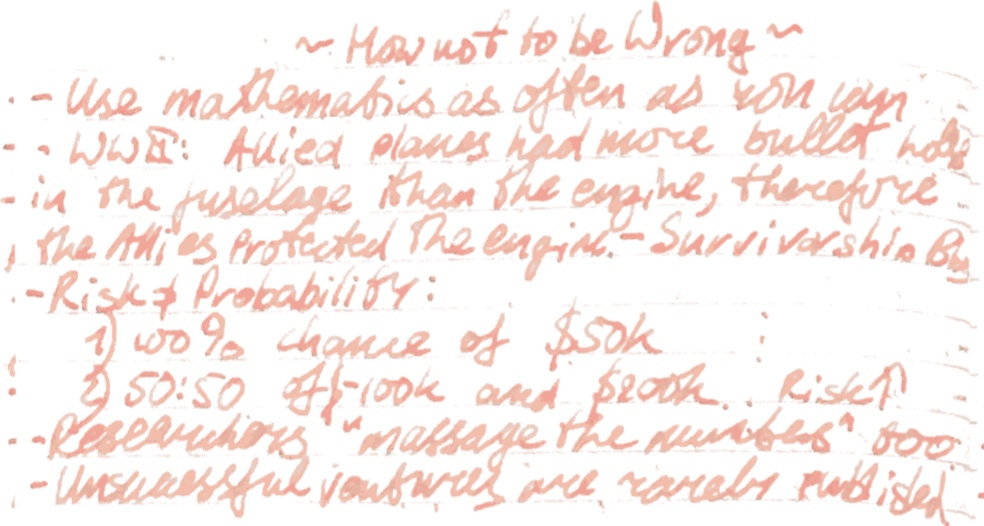 ~ How not to be Wrong ~
- Use mathematics as often as you can
- WWII: Allied planes had more bullet holes
in the fuselage than the engine, therefore
the Allies protected the engine. - Survivorship Bias
- Risk ≠ Probability:
1) 100% chance of $50k
2) 50:50 of $-100k and $200k. Risk↑
- Researchers "massage the numbers" too
- Unsuccessful ventures are rarely published